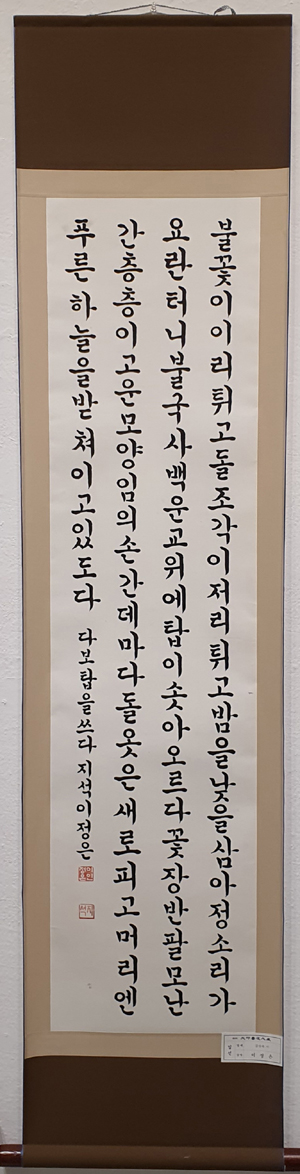 불꽃이이리튀고돌조각이저리튀고밤을낮을삼아정소리가
요란터니불국사백운교위에탑이솟아오르다꽃장반팔모난
간층층이고운모양임의손간데마다돌옷은새로피고머리엔
푸른하늘을받쳐이고있도다 다보탑을쓰다 지석이정은